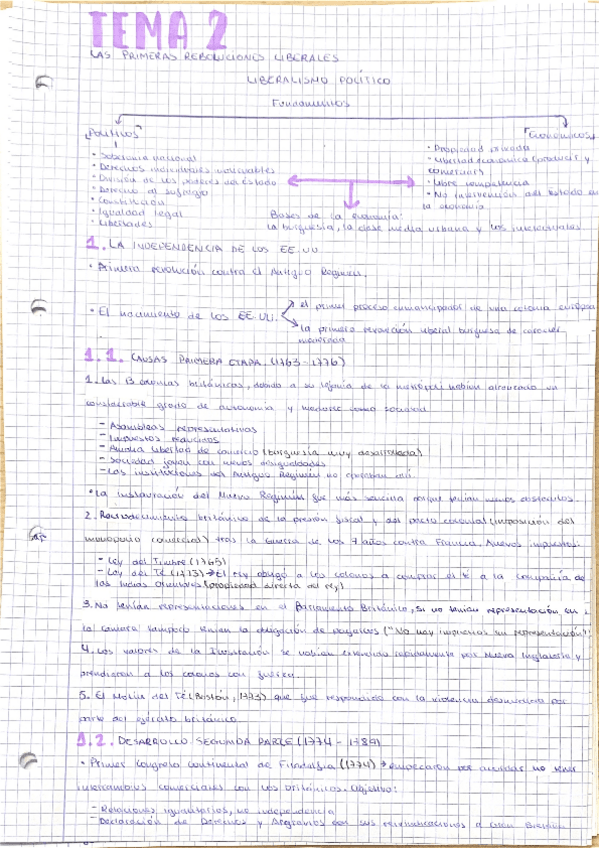 TEMA 2
LAS PRIMERAS REBOLUCIONES LIBERALES
LIBERALISMO POLÍTICO
Fundamentos
"Políticos"
"Económicos"
• Soberanía nacional
• Derechos individuales inviolables
• División de los poderes del Estado
• Derecho al sufragio
• Constitución
• Igualdad legal
• Libertades
• Propiedad privada
• Libertad económica (producir y
comerciar)
• Libre competencia
• No intervención del Estado en
la economía
Bases de la economía:
la burguesía, la clase media urbana y los intelectuales
1. LA INDEPENDENCIA DE LOS EE.UU
• Primera revolución contra el Antiguo Régimen.
• El nacimiento de los EE.UU.
el primer proceso emancipador de una colonia europea
la primera revolución liberal burguesa de carácter
1.1. CAUSAS PRIMERA ETAPA (1763-1776)
1. Las 13 colonias británicas, debido a su lejanía de la metrópoli habían alcanzado un
considerable grado de autonomía y madurez como sociedad
- Asambleas representativas
- Impuestos reducidos
- Amplia libertad de comercio (burguesía muy desarrollada)
- Sociedad joven con menos desigualdades
- Las instituciones del Antiguo Régimen no operaban allí.
• La instauración del Nuevo Régimen fue más sencilla porque tenían menos obstáculos.
2. británico de la presión fiscal y del pacto colonial (imposición del
monopolio comercial) tras la Guerra de los 7 años contra Francia. Nuevos impuestos:
- Ley del Timbre (1765)
- Ley del Té (1773) → El rey obligó a los colonos a comprar el té a la Compañía de
las Indias Orientales (propiedad directa del rey)
3. No tenían representaciones en el Parlamento Británico, si no tenían representación en
la cámara tampoco tenían la obligación de pagarlos ("No hay impuestos sin representación")
4. Los valores de la Ilustración se habían extendido rápidamente por Nueva Inglaterra y
prendieron a los colonos con fuerza.
5. El Motín del Té (Boston, 1773) que fue respondido con la violencia desmesurada por
parte del ejército británico.
1.2. DESARROLLO SEGUNDA PARTE (1774-1789)
• Primer Congreso continental de Filadelfia (1774) → por acordar no tener
intercambios comerciales con los británicos. Objetivo:
- Relaciones igualitarias, no independencia
- Declaración de Derechos y Agravios con sus reivindicaciones a Gran Bretaña